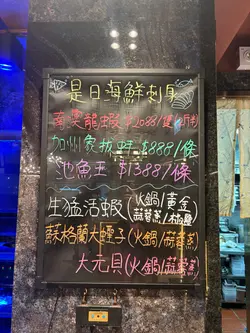 是日海鮮刺身
南澳龍蝦 $1088/隻
加州象拔蚌 $888/條
池魚王 $1388/條
生猛活蝦 (火鍋/黃金
蒜蓉蒸/椒鹽)
蘇格蘭大蟶子 (火鍋/蒜蓉蒸)
大元貝 (火鍋/蒜蓉蒸)